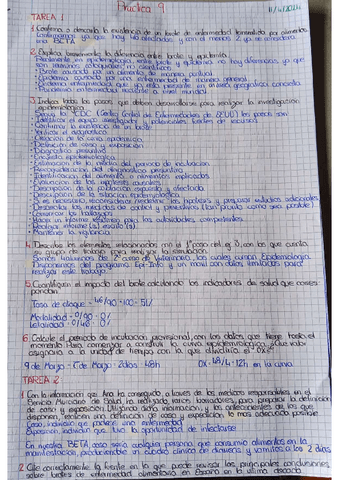 Práctica 9
11/4/2024
TAREA 1
1. Confirma o descarta la existencia de un brote de enfermedad transmitida por alimentos
ya que hay 48 afectados, y con el menos 2 ya se considera
un BETA
2. Explica brevemente la diferencia entre brote y epidemia
Realmente en epidemiología entre brote y epidemia no hay diferencias, ya que
son términos
Brote causado por un alimento de manera puntual
Epidemia causada por una enfermedad de manera general
Endemia enfermedad que ya está presente en un área geográfica concreta
Pandemia enfermedad existente a nivel mundial
3. Indica todos los pasos que deben desarrollarse para realizar la investigación
epidemiológica
Según los CDC (Center Control de Enfermedades de EEUU) los pasos son:
Identificar el equipo investigador y potenciales fuentes de recursos
Confirmar la existencia de un brote
Verificar el diagnóstico
Creación de la curva epidémica
Definición de caso y exposición
Diagnóstico presuntivo
Encuesta epidemiológica
Estimación de la media del periodo de incubación
Reconsideración del diagnóstico presuntivo
Identificación del alimento o alimentos implicados
Evaluación de las ingestas
Descripción de la población expuesta y afectada
Descripción de la situación epidemiológica
Si es necesario, reconsiderar/redefinir las hipótesis y preparar estudios adicionales
Desarrollar las medidas de control y preventivas (tan pronto como sea posible)
Comunicar los hallazgos
Hacer un informe resumen para las autoridades competentes
Realizar informe(s) escrito(s)
Mantener la vigilancia
4. Describe los elementos relacionados con el 1º paso del ej. 3, con los que cuenta
su grupo de trabajo para realizar la simulación
Somos alumnos de 2º curso de Veterinaria, los cuales cursan Epidemiología.
Disponemos del programa Epi-Info y un móvil con datos ilimitados para
realizar este trabajo.
5. Cuantifiquen el impacto del brote calculando los indicadores de salud que correspondan
Tasa de ataque - 46/90 · 100 = 51%
Mortalidad = 0/90 = 0/
Letalidad = 0/48 = 0/
6. Calcule el periodo de incubación, provisional, con los datos que tiene hasta el
momento. Para comenzar a construir la curva epidemiológica, ¿Qué valor
asignaría a la unidad de tiempo con la que dividiría el "0x"?
9 de Marzo - 7 de Marzo = 2 días = 48h 0x = 48/4 = 12h en la curva
TAREA 2
1. Con la información que Ana ha conseguido a través de los médicos responsables en el
Servicio Murciano de Salud, ha realizado varios borradores, para preparar la definición
de caso y exposición. Utilizando dicha información, y los antecedentes de los que
disponen, realicen una definición de caso y exposición, lo más adecuada posible
Caso: individuo que padece una enfermedad
Exposición: individuo que tuvo la oportunidad de infectarse
En nuestra BETA caso sería cualquier persona que consumió alimentos en la
manifestación, produciéndole un cuadro clínico de diarreas y vómitos a los 2 días
2. Cite correctamente la fuente en la que puede revisar las principales conclusiones
sobre brotes de enfermedad alimentaria en España en la última década